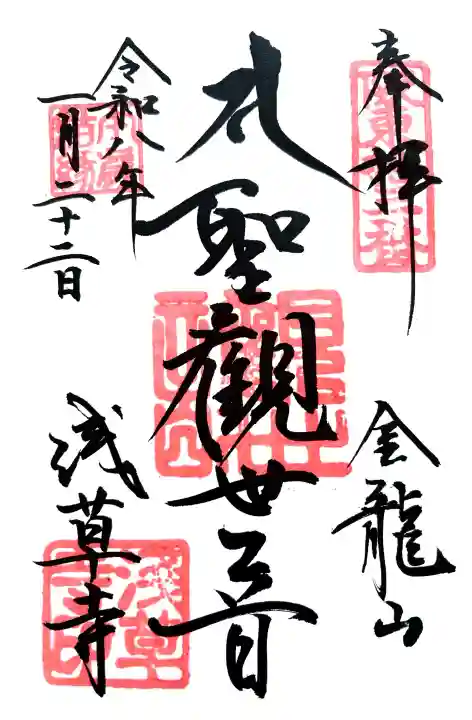 奉拝
金龍山
聖觀世音
令和八年
一月二十二日
浅草寺
浅草寺印